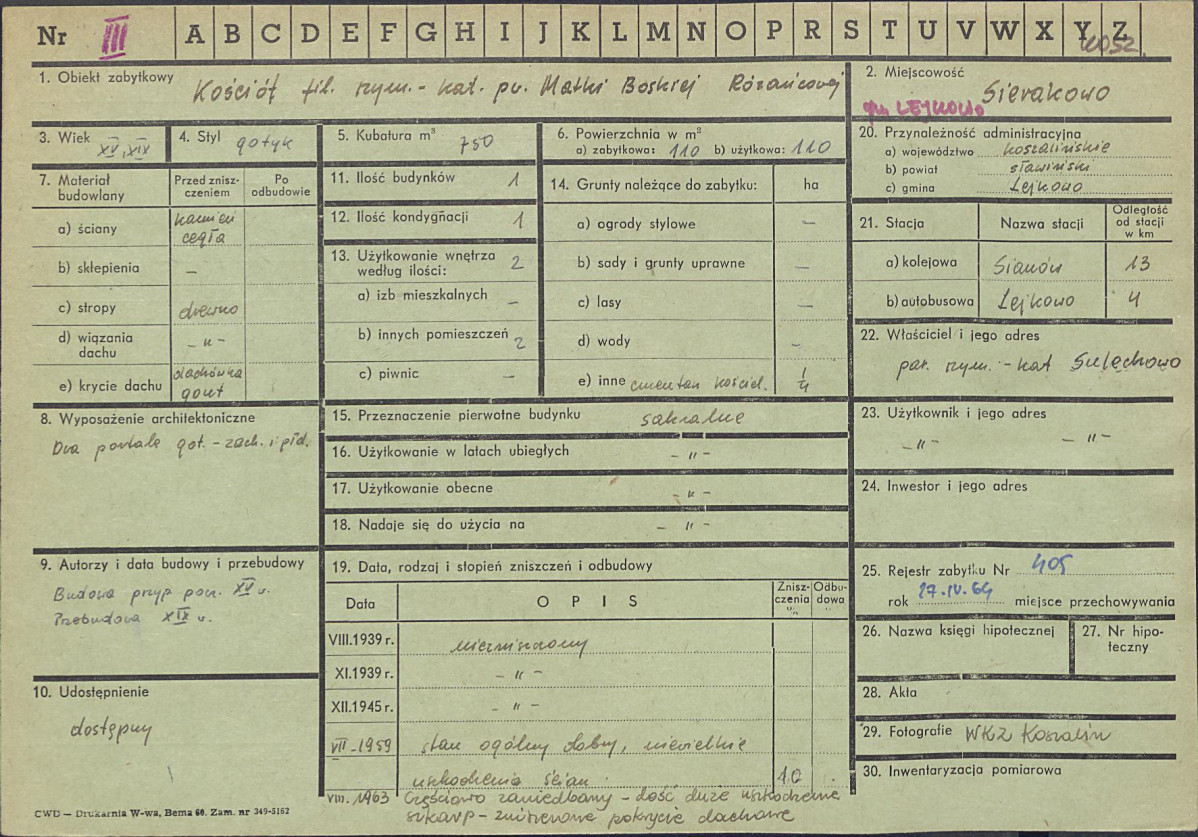 Nr III A B C D E F G H I J K L M N O P R S T U V W X Y Z
1. Obiekt zabytkowy
Kościół fil. rzym.-kat. pw. Matki Boskiej Różańcowej
2. Miejscowość
Sierakowo
gm LEJKOWO
3. Wiek XV, XIX
4. Styl gotyk
5. Kubatura m³ 750
6. Powierzchnia w m²
a) zabytkowa: 110 b) użytkowa: 110
20. Przynależność administracyjna
a) województwo koszalińskie
b) powiat sławiński
c) gmina Lejkowo
7. Materiał budowlany
Przed zniszczeniem
Po odbudowie
a) ściany kamień cegła
b) sklepienia —
c) stropy drewno
d) wiązania dachu - " -
e) krycie dachu dachówka gont
11. Ilość budynków 1
12. Ilość kondygnacji 1
13. Użytkowanie wnętrza według ilości: 2
a) izb mieszkalnych —
b) innych pomieszczeń 2
c) piwnic —
14. Grunty należące do zabytku: ha
a) ogrody stylowe —
b) sady i grunty uprawne —
c) lasy —
d) wody —
e) inne cmentarz kościel. 1/4
21. Stacja
Nazwa stacji
Odległość od stacji w km
a) kolejowa Sianów 13
b) autobusowa Lejkowo 4
22. Właściciel i jego adres
par. rzym.-kat Sulechowo
8. Wyposażenie architektoniczne
Dwa portale got. - zach. i płd.
15. Przeznaczenie pierwotne budynku sakralne
16. Użytkowanie w latach ubiegłych - " -
17. Użytkowanie obecne - " -
18. Nadaje się do użycia na - " -
23. Użytkownik i jego adres
- " - - " -
24. Inwestor i jego adres
9. Autorzy i data budowy i przebudowy
Budowa przyp. pocz. XV w.
Przebudowa XIX w.
19. Data, rodzaj i stopień zniszczeń i odbudowy
Data
OPIS
Zniszczenia %
Odbudowa
VIII.1939 r. niezniszczony
XI.1939 r. - " -
XII.1945 r. - " -
VII-1959 stan ogólny dobry, niewielkie
uszkodzenia ścian. 10
VIII.1963 Częściowo zaniedbany - dość duże uszkodzenie
szkarp - zniszczone pokrycie dachowe
25. Rejestr zabytku Nr 405
rok 27.IV.64 miejsce przechowywania
26. Nazwa księgi hipotecznej
27. Nr hipoteczny
28. Akta
29. Fotografie WKZ Koszalin
30. Inwentaryzacja pomiarowa
10. Udostępnienie
dostępny
CWD — Drukarnia W-wa, Bema 60. Zam. nr 349-5162